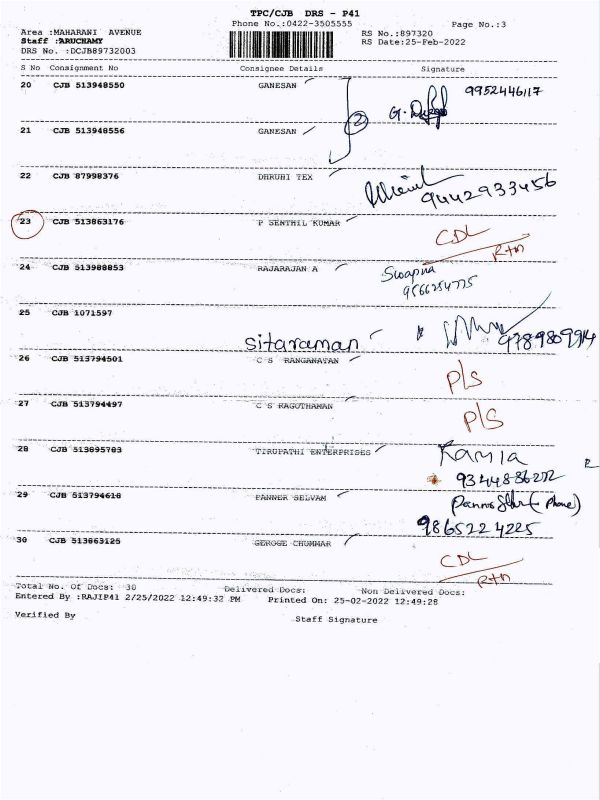 TPC/CJB DRS - P41
Phone No.:0422-3505555
Page No.:3
Area :MAHARANI AVENUE
RS No.:897320
Staff :ARUCHAMY
RS Date:25-Feb-2022
DRS No. :DCJB89732003
S No Consignment No Consignee Details Signature
20 CJB 513948550 GANESAN 9952446117
2
21 CJB 513948556 GANESAN
22 CJB 87998376 DHRUHI TEX
9442933456
23 CJB 513863176 P SENTHIL KUMAR CDL
Rtn
24 CJB 513988853 RAJARAJAN A Swapna
9566254775
25 CJB 1071597
sitaraman 9789809914
26 CJB 513794501 C S RANGANATAN P/S
27 CJB 513794497 C S RAGOTHAMAN P/S
28 CJB 513895783 TIRUPATHI ENTERPRISES Kamla
R
93448-86272
29 CJB 513794618 PANNER SELVAM (Phone)
9865224225
30 CJB 513863125 GEROGE CHUMMAR CDL
Rtn
Total No. Of Docs: 30 Delivered Docs: Non Delivered Docs:
Entered By :RAJIP41 2/25/2022 12:49:32 PM Printed On: 25-02-2022 12:49:28
Verified By Staff Signature